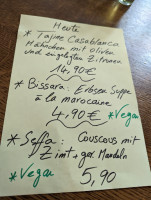 Heute
* Tajine Casablanca
Hähnchen mit Oliven
und eingelegten Zitronen
14,90€
* Bissara: Erbsen Suppe
à la marocaine
4,90€ *Vegan
* Seffa: Couscous mit
Zimt, ger. Mandeln
*Vegan 5,90